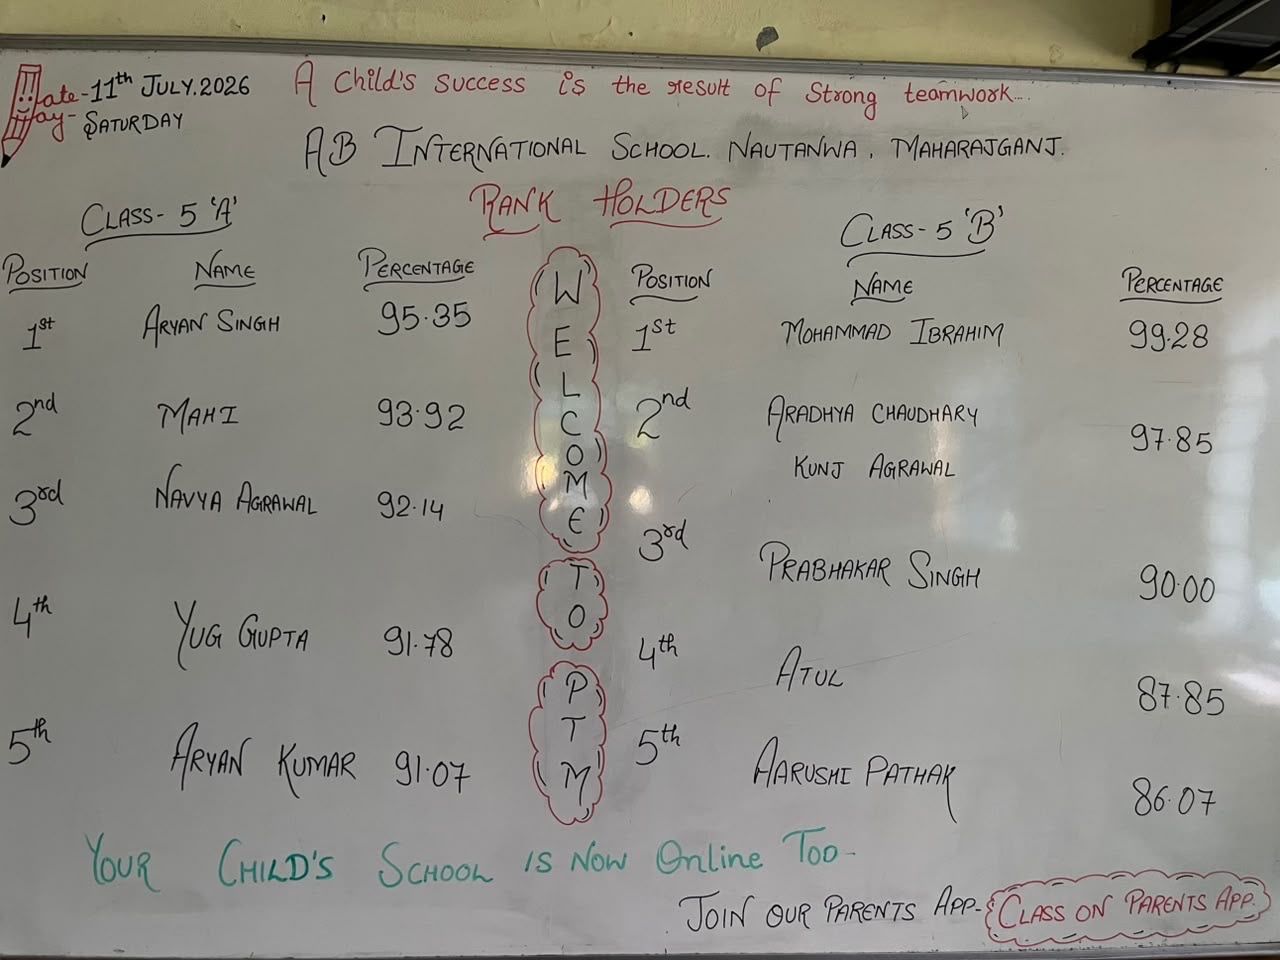 Date-11th JULY.2026
Day-SATURDAY
A Child's success is the result of Strong teamwork...
AB INTERNATIONAL SCHOOL. NAUTANWA, MAHARAJGANJ.
RANK HOLDERS
CLASS-5 'A'
POSITION NAME PERCENTAGE
1st ARYAN SINGH 95.35
2nd MAHI 93.92
3rd NAVYA AGRAWAL 92.14
4th YUG GUPTA 91.78
5th ARYAN KUMAR 91.07
WELCOME
TO
PTM
CLASS-5 'B'
POSITION NAME PERCENTAGE
1st MOHAMMAD IBRAHIM 99.28
2nd ARADHYA CHAUDHARY 97.85
KUNJ AGRAWAL
3rd PRABHAKAR SINGH 90.00
4th ATUL 87.85
5th AARUSHI PATHAK 86.07
YOUR CHILD'S SCHOOL IS NOW Online TOO-
JOIN OUR PARENTS APP- CLASS ON PARENTS APP.